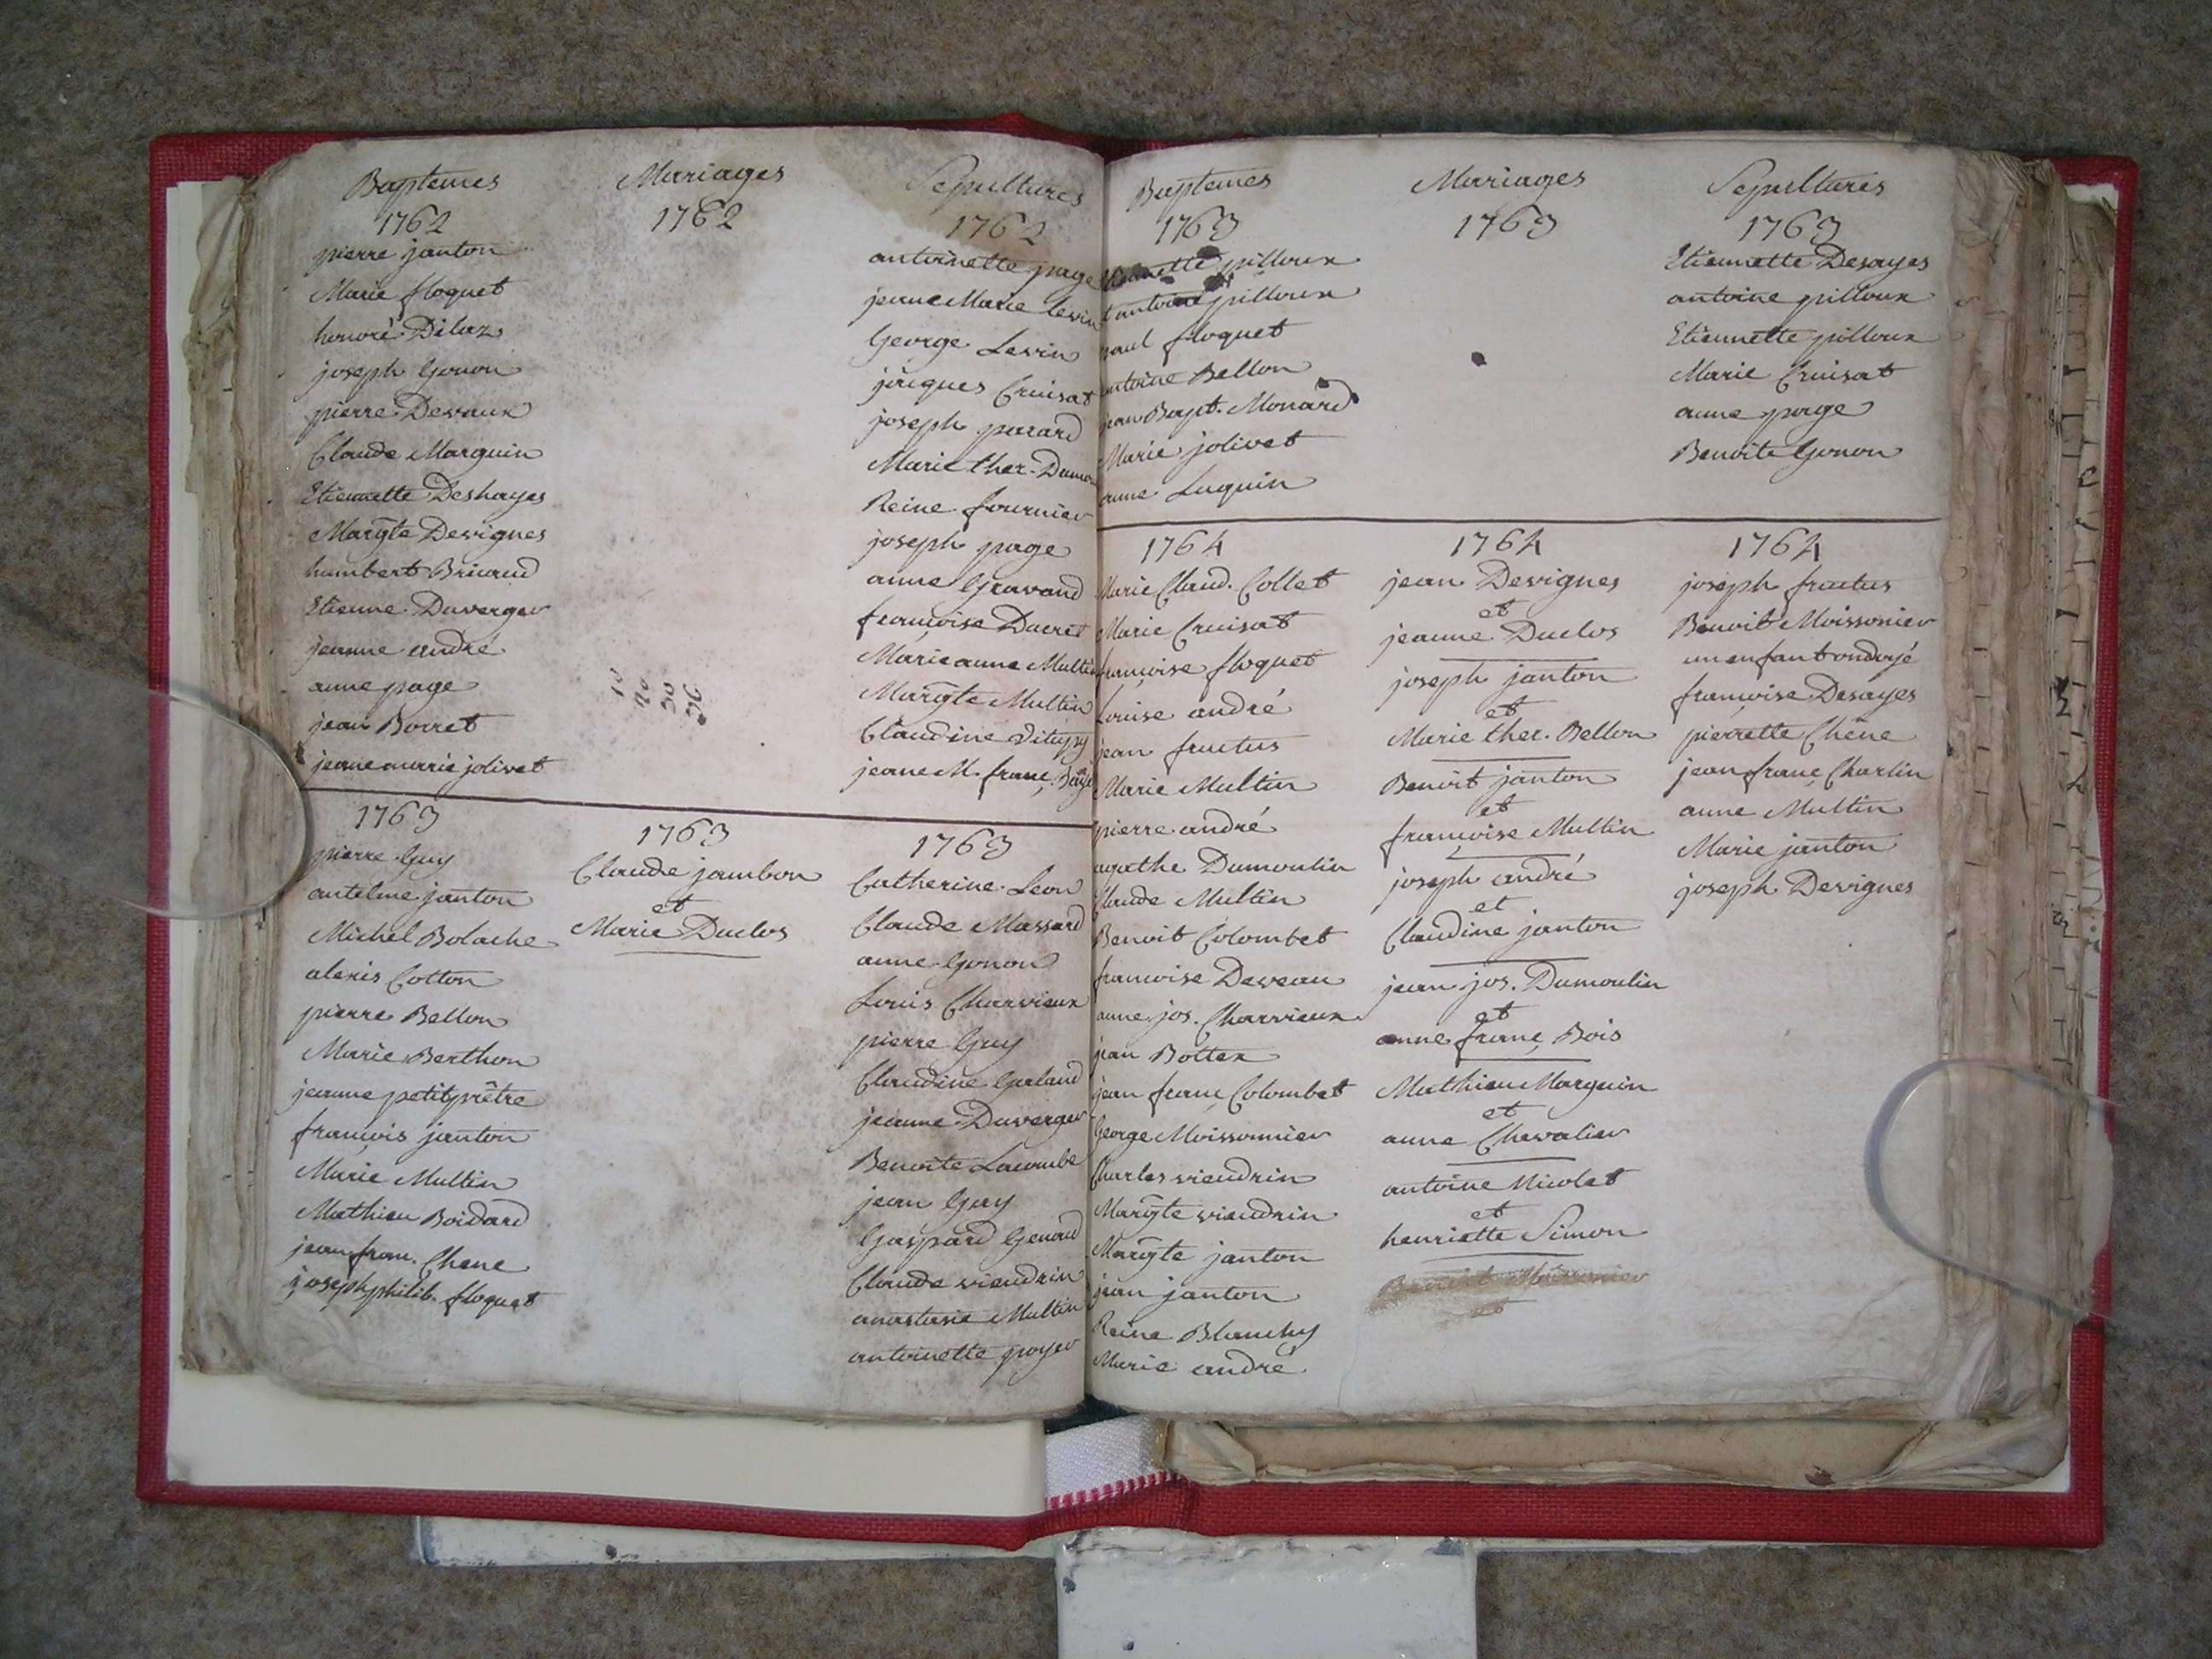 Baptemes
1762
pierre janton
Marie floquet
honoré Dilaz
joseph Gonon
pierre Devaux
Claude Marguin
Etiennette Deshayes
Margte Devignes
humbert Briand
Etienne Duverger
jeanne andré
anne page
jean Borret
jeane marie jolivet
1763
pierre Guy
antelme janton
Michel Bolache
alexis Cotton
pierre Bellon
Marie Berthon
jeanne petitprêtre
françois janton
Marie Multin
Mathieu Boidard
jean fran. Chene
joseph philib. floquet
Mariages
1762
10
20
30
36
1763
Claude jambon
et
Marie Duclos
Sepultures
1762
antoinette page
jeane Marie Levin
George Levin
jâcques Cruisat
joseph parard
Marie ther.
Reine fournier
joseph page
anne Gravand
françoise Ducret
Marie anne Multin
Margte Multin
Claudine
jeane M. franç.
1763
Catherine Leon
Claude Massard
anne Gonon
Louis Charvieux
pierre Guy
Claudine Galand
jeanne Duverger
Benoite Lacombe
jean Guy
Gaspard Genoud
Claude viendrin
anastasie Multin
antoinette poyer
Baptemes
1763
pilloux
antoine pilloux
paul floquet
antoine Bellon
jean Bapt. Monard
Marie jolivet
anne Luquin
1764
Marie Claud. Collet
Marie Cruisat
françoise floquet
Louise andré
jean fructus
Marie Multin
pierre andré
agathe Dumoulin
Claude Multin
Benoit Colombet
francoise Deveau
anne jos. Charvieux
jean Bottex
jean franç Colombet
George Moissonnier
Charles viendrin
Margte viendrin
Margte janton
jean janton
Reine Blanchy
Marie andré
Mariages
1763
1764
jean Devignes
et
jeanne Duclos
joseph janton
et
Marie ther. Bellon
Benoit janton
et
françoise Multin
joseph andré
et
Claudine janton
jean jos. Dumoulin
et
anne franç Bois
Mathieu Marguin
et
anne Chevalier
antoine Nicolet
et
henriette Simon
Benoit Moissonier
et
Sepultures
1763
Etiennette Desayes
antoine pilloux
Etiennette pilloux
Marie Cruisat
anne page
Benoite Gonon
1764
joseph fructus
Benoit Moissonier
un enfant ondoyé
françoise Desayes
pierrette Chêne
jean franç Charlin
anne Multin
Marie janton
joseph Devignes